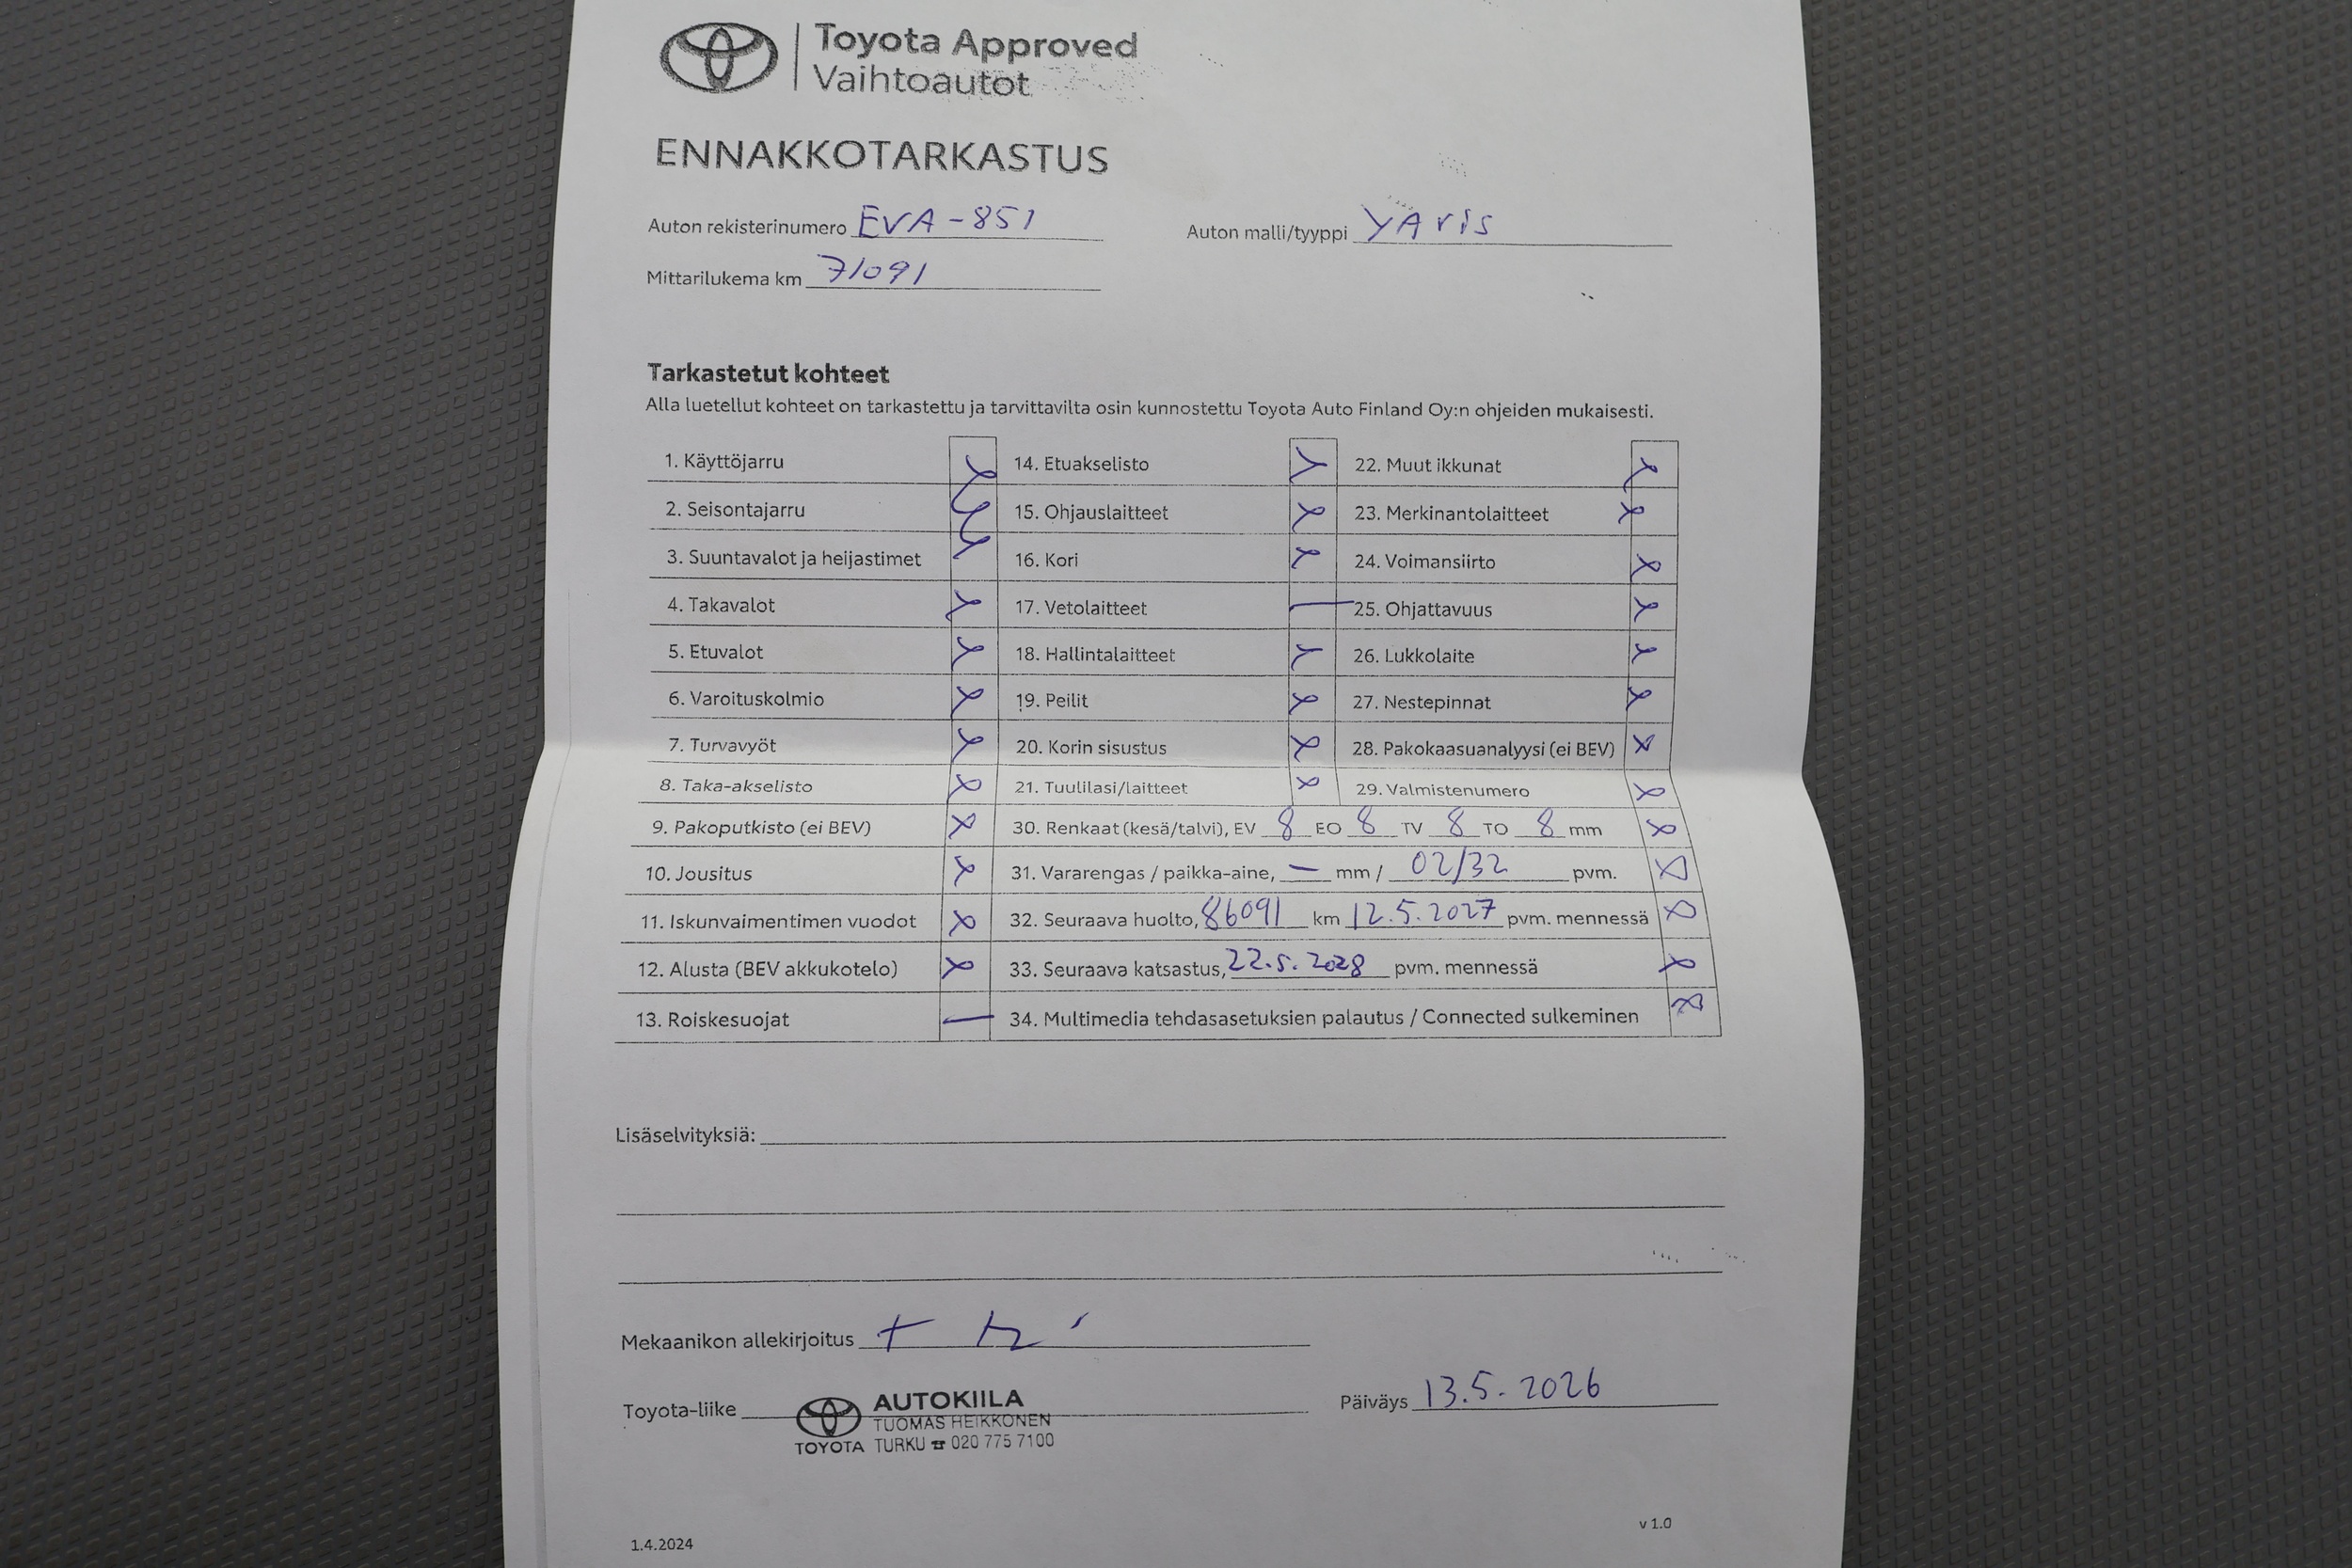 Toyota Approved
Vaihtoautot
ENNAKKOTARKASTUS
Auton rekisterinumero EVA-851 Auton malli/tyyppi YAris
Mittarilukema km 71091
Tarkastetut kohteet
Alla luetellut kohteet on tarkastettu ja tarvittavilta osin kunnostettu Toyota Auto Finland Oy:n ohjeiden mukaisesti.
1. Käyttöjarru 14. Etuakselisto 22. Muut ikkunat
2. Seisontajarru 15. Ohjauslaitteet 23. Merkinantolaitteet
3. Suuntavalot ja heijastimet 16. Kori 24. Voimansiirto
4. Takavalot 17. Vetolaitteet 25. Ohjattavuus
5. Etuvalot 18. Hallintalaitteet 26. Lukkolaite
6. Varoituskolmio 19. Peilit 27. Nestepinnat
7. Turvavyöt 20. Korin sisustus 28. Pakokaasuanalyysi (ei BEV)
8. Taka-akselisto 21. Tuulilasi/laitteet 29. Valmistenumero
9. Pakoputkisto (ei BEV) 30. Renkaat (kesä/talvi), EV 8 EO 8 TV 8 TO 8 mm
10. Jousitus 31. Vararengas / paikka-aine, — mm / 02/32 pvm.
11. Iskunvaimentimen vuodot 32. Seuraava huolto, 86091 km 12.5.2027 pvm. mennessä
12. Alusta (BEV akkukotelo) 33. Seuraava katsastus, 22.5.2028 pvm. mennessä
13. Roiskesuojat 34. Multimedia tehdasasetuksien palautus / Connected sulkeminen
Lisäselvityksiä:
Mekaanikon allekirjoitus
Toyota-liike AUTOKIILA Päiväys 13.5.2026
TUOMAS HEIKKONEN
TOYOTA TURKU ☎ 020 775 7100
v 1.0
1.4.2024